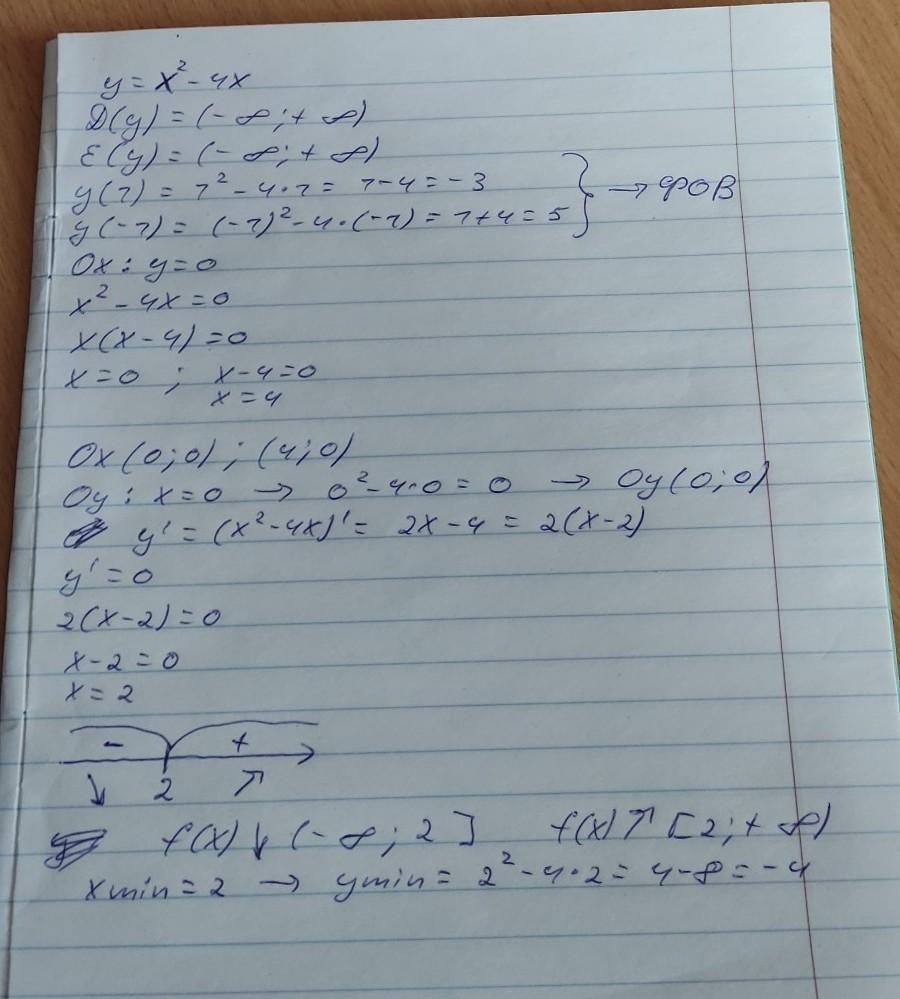 y = x² - 4x
D(y) = (- ∞; + ∞)
E(y) = (- ∞; + ∞)
y(1) = 1² - 4·1 = 1-4 = -3
y(-1) = (-1)² - 4·(-1) = 1+4 = 5 } → ФОВ
Ox: y=0
x² - 4x = 0
x(x-4) = 0
x = 0 ; x-4=0
x = 4
Ox (0;0) ; (4;0)
Oy: x=0 → 0²-4·0 = 0 → Oy(0;0)
y' = (x²-4x)' = 2x-4 = 2(x-2)
y' = 0
2(x-2) = 0
x-2 = 0
x = 2
- +
↘ 2 ↗
f(x) ↓ (- ∞; 2] f(x) ↗ [2; + ∞)
xmin = 2 → ymin = 2² - 4·2 = 4-8 = -4